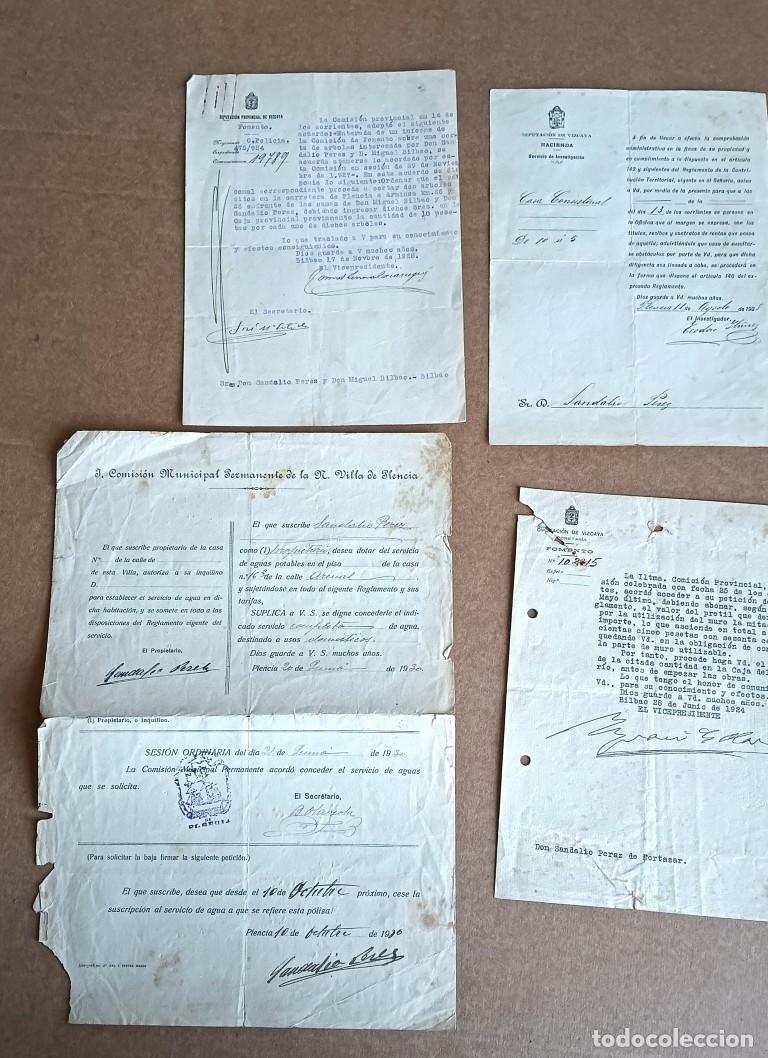 DIPUTACIÓN PROVINCIAL DE VIZCAYA
Fomento.
Negociado C.Policia.
478/924
19,789
La Comisión provincial en 14 de
los corrientes, adoptó el siguiente
acuerdo:-Enterada de un informe de
la Comisión de Fomento sobre una cor-
ta de arboles interesada por Don San-
dalio Perez y D. Miguel Bilbao, se
acuerda
Comisión en sesión de 29 de Novie
bre 1.927.- En este acuerdo se dis
ponia lo siguiente:Ordenar que el per
sonal correspondiente proceda a cortar dos arboles
sitos en la carretera de Plencia a Arminza
enfrente de las casas de Don Miguel Bilbao y Don
Sandalio Perez, debiendo ingresar dichos Sres. en la
Caja provincial previamente la cantidad de 10 pese-
tas por cada uno de dichos arboles.
Lo que traslado a V para su conocimiento
y efectos consiguientes.
Dios guarde a V muchos años.
Bilbao 17 de Novbre de 1928.
El Vicepresidente.
El Secretario.
Sres. Don Sandalio Perez y Don Miguel Bilbao.- Bilbao
DIPUTACIÓN DE VIZCAYA
HACIENDA
Servicio de Investigación
Casa Consistorial
De 10 á 5
A fin de llevar a efecto la comprobación
administrativa en la finca de su propiedad y
en cumplimiento a lo dispuesto en el artículo
142 y siguientes del Reglamento de la Contri-
bución Territorial, vigente en el Señorío, aviso
a Vd, por medio de la presente para que a las
de la
del día 13 de los corrientes se persone en
la Oficina que al margen se expresa, con los
títulos, recibos y contratos de rentas que posea
de aquélla; advirtiéndole que caso de suscitar-
se obstáculos por parte de Vd, para que dicha
diligencia sea llevada a cabo, se procederá en
la forma que dispone el artículo 146 del ex-
presado Reglamento.
Dios guarde a Vd. muchos años.
Plencia 11 de Agosto de 192
El Investigador,
Sr. D. Sandalio Pérez
I. Comisión Municipal Permanente de la N. Villa de Plencia
El que suscribe propietario de la casa
N.º de la calle de
de esta Villa, autoriza a su inquilino
D.
para establecer el servicio de agua en di-
cha habitación, y se somete en todo a las
disposiciones del Reglamento vigente del
servicio.
El Propietario,
Sandalio Perez
El que suscribe Sandalio Perez
como (1) propietario, desea dotar del servicio
de aguas potables en el piso de la casa
n.º 63 de la calle Arenal
y sujetándose en todo al vigente Reglamento y sus
tarifas,
SUPLICA a V. S. se digne concederle el indi-
cado servicio completo de agua,
destinado a usos domésticos.
Dios guarde a V. S. muchos años.
Plencia 20 de Junio de 1930.
(1) Propietario, o inquilino.
SESIÓN ORDINARIA del día 21 de Junio de 1930
La Comisión Municipal Permanente acordó conceder el servicio de aguas
que se solicita.
El Secretário,
(Para solicitar la baja firmar la siguiente petición.)
El que suscribe, desea que desde el 10 de Octubre próximo, cese la
suscripción al servicio de agua a que se refiere esta póliza!
Plencia 10 de Octubre de 1930
Sandalio Perez
DIPUTACIÓN DE VIZCAYA
SECRETARÍA
FOMENTO
Expte.
Neg.º
La Iltma. Comisión Provincial,
sión celebrada con fecha 25 de los
tes, acordó acceder a su petición de
Mayo último, debiendo abonar, según
glamento, el valor del pretil que der
por la utilización del muro la mitad
importe, lo que asciende en total a
cientas cinco pesetas con sesenta ce
quedando Vd. en la obligación de con
la parte de muro utilizable.
Por tanto, procede haga Vd. el
de la citada cantidad en la Caja del
río, antes de empezar las obras.
Lo que tengo el honor de comuni
Vd., para su conocimiento y efectos.
Dios guarde a Vd. muchos años.
Bilbao 28 de Junio de 1924
EL VICEPRESIDENTE
Don Sandalio Perez de Cortazar.
todocoleccion